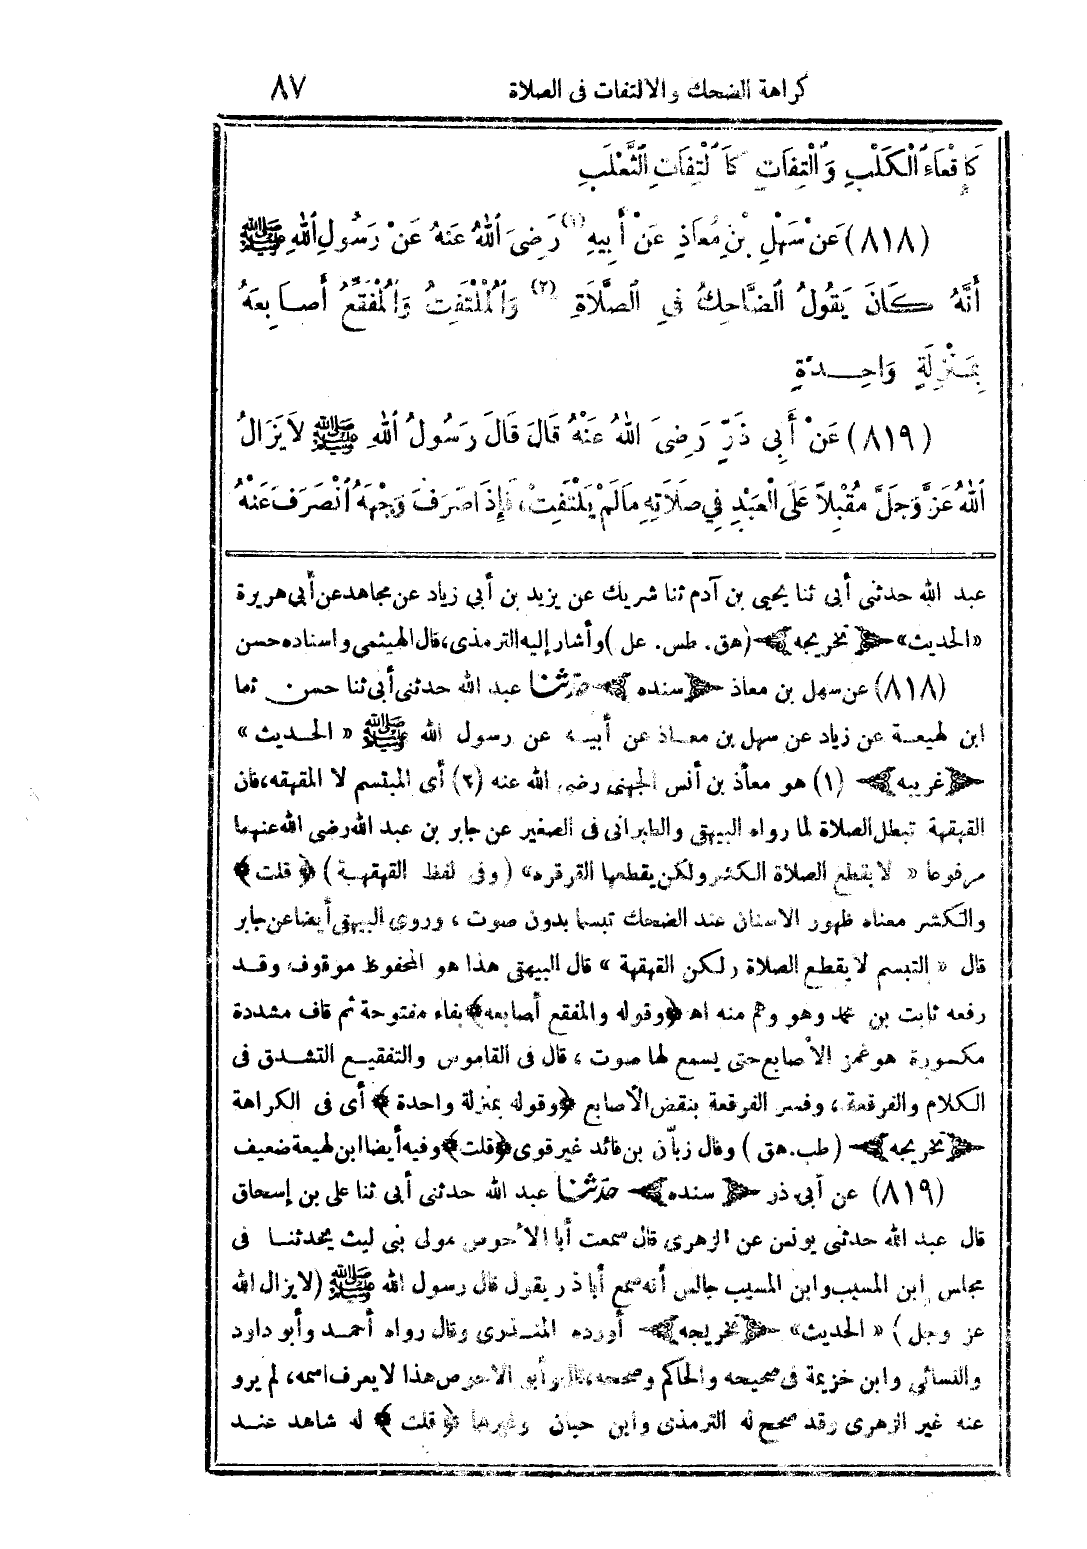 كراهة الضحك والالتفات فى الصلاة ٨٧
كَإِقْعَاءِ الْكَلْبِ وَالْتِفَاتٍ كَالْتِفَاتِ الثَّعْلَبِ
(٨١٨) عَنْ سَهْلِ بْنِ مُعَاذٍ عَنْ أَبِيهِ (١) رَضِىَ اللهُ عَنْهُ عَنْ رَسُولِ اللهِ ﷺ
أَنَّهُ كَانَ يَقُولُ الضَّاحِكُ فِي الصَّلَاةِ (٢) وَالْمُلْتَفِتُ وَالْمُفَقِّعُ أَصَابِعَهُ
بِمَنْزِلَةٍ وَاحِدَةٍ
(٨١٩) عَنْ أَبِى ذَرٍّ رَضِىَ اللهُ عَنْهُ قَالَ قَالَ رَسُولُ اللهِ ﷺ لَا يَزَالُ
اللهُ عَزَّ وَجَلَّ مُقْبِلاً عَلَى الْعَبْدِ فِي صَلَاتِهِ مَا لَمْ يَلْتَفِتْ، فَإِذَا صَرَفَ وَجْهَهُ انْصَرَفَ عَنْهُ
عبد الله حدثنى أبى ثنا يحيى بن آدم ثنا شريك عن يزيد بن أبى زياد عن مجاهد عن أبى هريرة
«الحديث» ﴿تخريجه﴾ (هق. طس. عل) وأشار إليه الترمذى، قال الهيثمى واسناده حسن
(٨١٨) عن سهل بن معاذ ﴿سنده﴾ حدّثنا عبد الله حدثنى أبى ثنا حسن ثنا
ابن لهيعة عن زياد عن سهل بن معاذ عن أبيه عن رسول الله ﷺ «الحديث»
﴿غريبه﴾ (١) هو معاذ بن أنس الجهنى رضى الله عنه (٢) أى المبتسم لا المقهقه، فان
القهقهة تبطل الصلاة لما رواه البيهقى والطبرانى فى الصغير عن جابر بن عبد الله رضى الله عنهما
مرفوعا «لا يقطع الصلاة الكشر ولكن يقطعها القرقره» (وفى لفظ القهقهة) ﴿قلت﴾
والكشر معناه ظهور الاسنان عند الضحك تبسما بدون صوت، وروى البيهقى أيضا عن جابر
قال «التبسم لا يقطع الصلاة ولكن القهقهة» قال البيهقى هذا هو المحفوظ موقوف وقد
رفعه ثابت بن محمد وهو وهم منه اهـ ﴿وقوله والمفقع أصابعه﴾ بفاء مفتوحة ثم قاف مشددة
مكسورة هو غمز الأصابع حتى يسمع لها صوت، قال فى القاموس والتفقيع التشدق فى
الكلام والفرقعة، وفسر الفرقعة بنقض الأصابع ﴿وقوله بمنزلة واحدة﴾ أى فى الكراهة
﴿تخريجه﴾ (طب. هق) وقال زبّان بن فائد غير قوى ﴿قلت﴾ وفيه أيضا ابن لهيعة ضعيف
(٨١٩) عن أبى ذر ﴿سنده﴾ حدّثنا عبد الله حدثنى أبى ثنا على بن إسحاق
قال عبد الله حدثنى يونس عن الزهرى قال سمعت أبا الأحوص مولى بنى ليث يحدثنا فى
مجلس ابن المسيب وابن المسيب جالس أنه سمع أبا ذر يقول قال رسول الله ﷺ (لا يزال الله
عز وجل) «الحديث» ﴿تخريجه﴾ أورده المنذرى وقال رواه أحمد وأبو داود
والنسائى وابن خزيمة فى صحيحه والحاكم وصححه، قال وأبو الاحوص هذا لا يعرف اسمه، لم يرو
عنه غير الزهرى وقد صحح له الترمذى وابن حبان وغيرهما ﴿قلت﴾ له شاهد عند